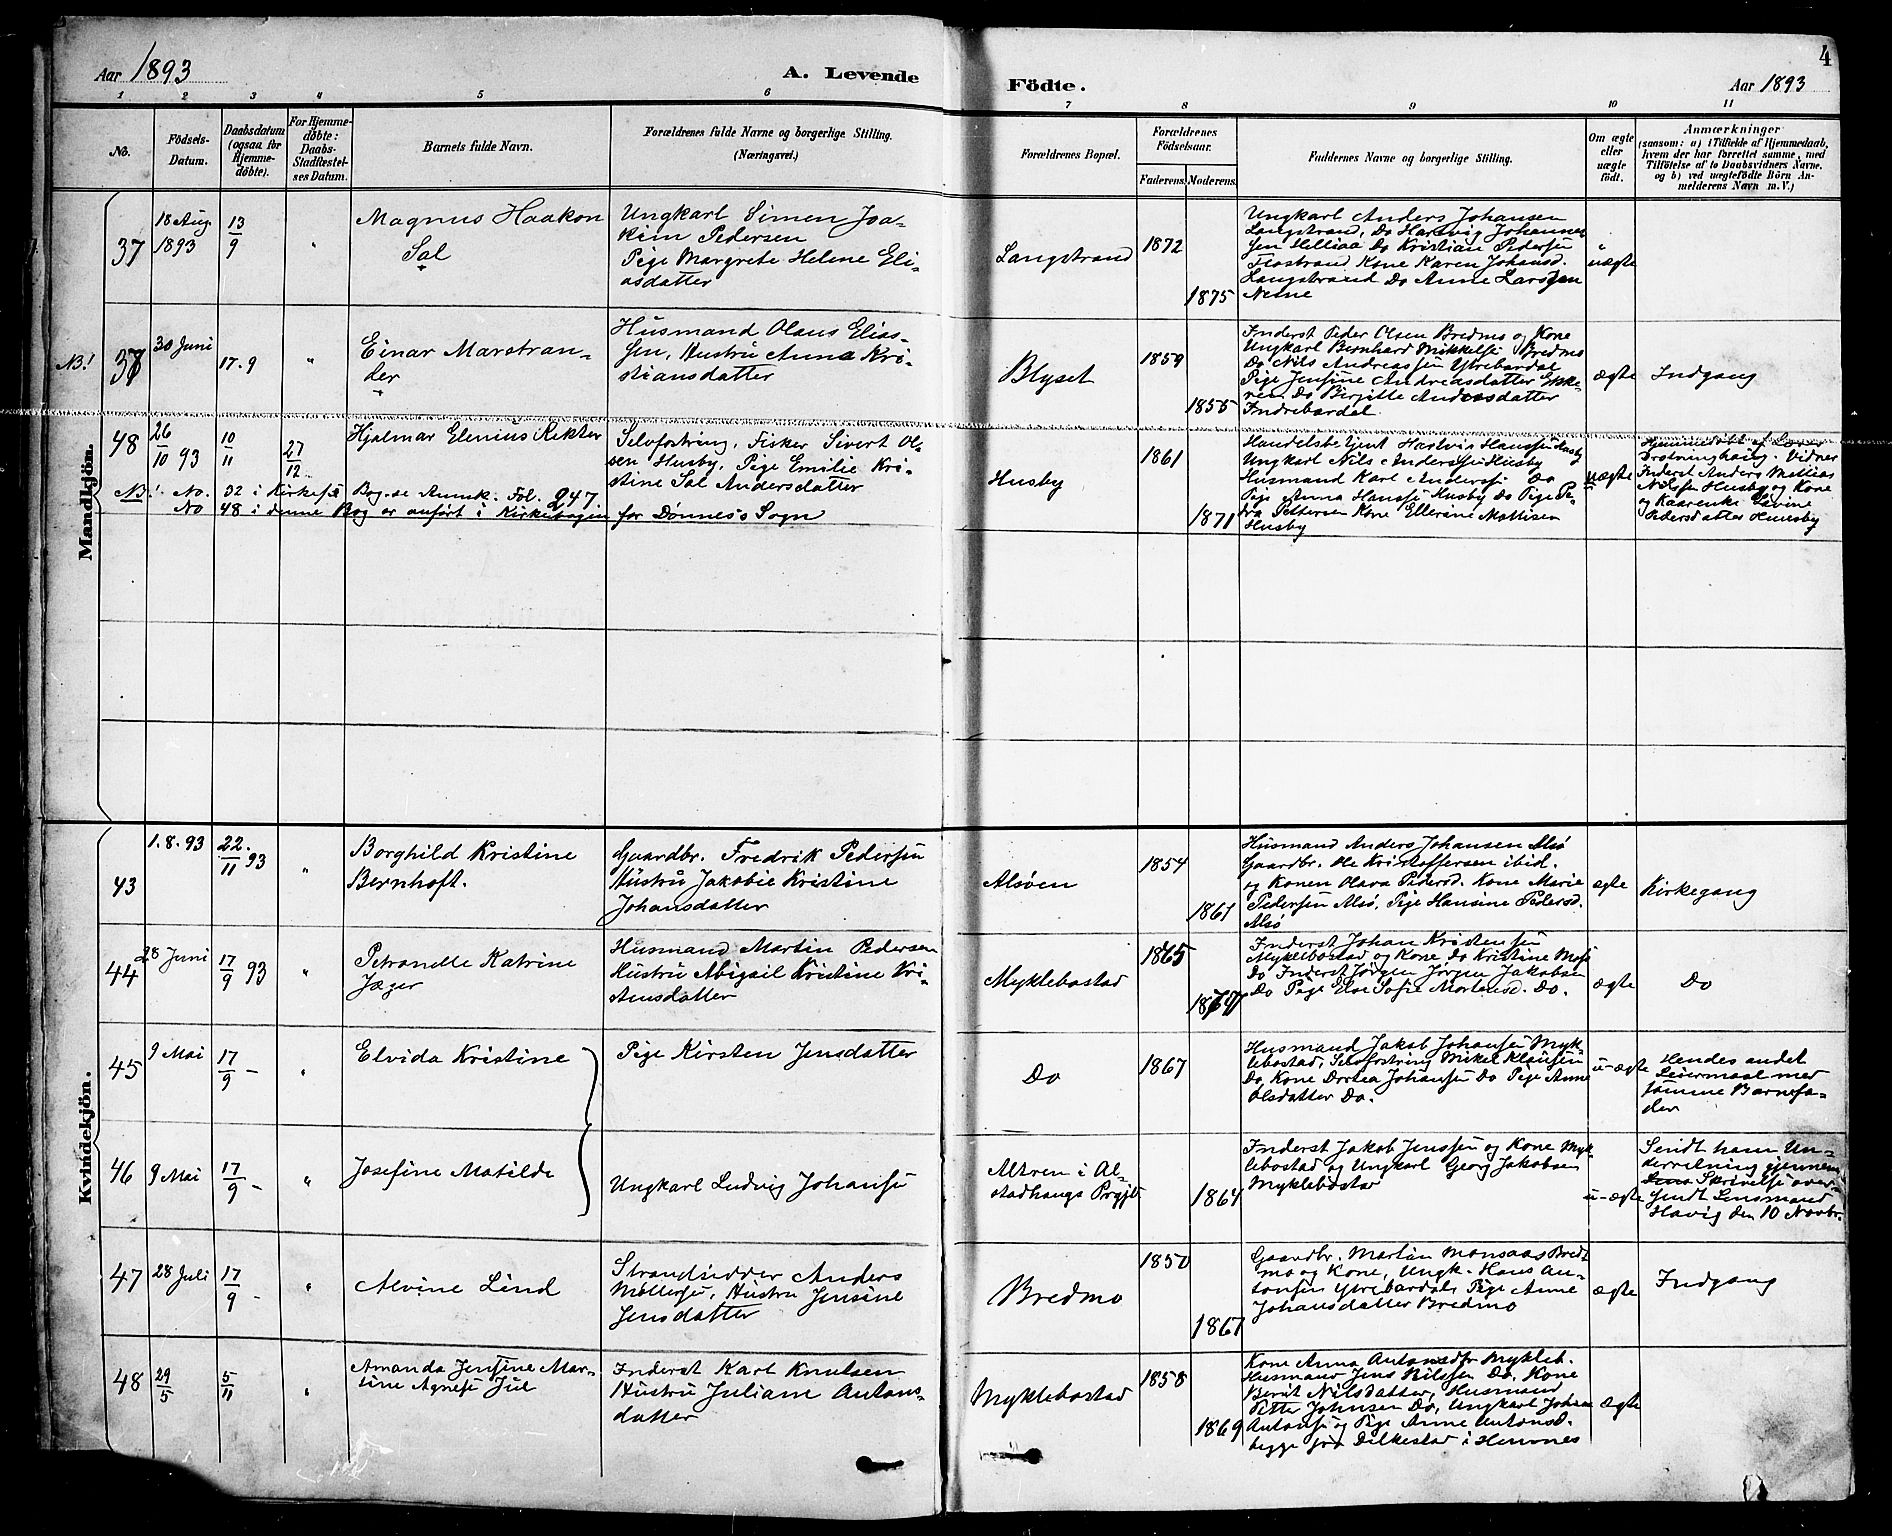 Aar 1893
A. Levende
Födte.
Aar 1893
4
1 2 3 4 5 6 7 8 9 10 11
No.
Födsels-
Datum.
Daabsdatum
(ogsaa for
Hjemme-
døbte).
For Hjemme-
døbte:
Daabs-
Stadfæstel-
ses Datum.
Barnets fulde Navn.
Forældrenes fulde Navne og borgerlige Stilling.
(Næringsvei.)
Forældrenes Bopæl.
Forældrenes
Födselsaar.
Faderens. Moderens.
Faddernes Navne og borgerlige Stilling.
Om ægte
eller
uægte
født.
Anmærkninger
(saasom: a) i Tilfælde af Hjemmedaab,
hvem der har forrettet samme, med
Tilföielse af to Daabsvidners Navne,
og b) ved uægtefødte Börn An-
melderens Navn m. V.)
Mandkjön.
37
18 Aug.
1893
13/9
"
Magnus Haakon
Sal
Ungkarl Simen Joa-
kim Pedersen
Pige Margrete Helene Eli-
asdatter
Langstrand
1872
1875
Ungkarl Anders Johansen
Langstrand, Do Hartvig Johannes
sen Do Kristian Pedersen
Flostrand Kone Karen Johansd.
Langstrand Do Anne Larsen
uægte
NB!
30 Juni
17.9
"
Einar Marstran-
der
Husmand Olaus Elias-
sen, Hustru Anna Kri-
stiansdatter
Blyset
1859
1855
Inderst Peder Olsen Bredmo og Kone
Ungkarl Bernhard Mikkels. Bredmo
Do Nils Andreassen Ytrebardal
Pige Jensine Andreasdatter
Do Birgitte Andersdatter
Indrebardal
ægte
Indgang
48
26/10 93
10/11
27/12
Hjalmar Elenius Rekter
Selvfostring, Fisker Sivert Ol-
sen Husby, Pige Emilie Kri-
stine Sal Andersdatter
Husby
1861
1871
Handelsbetjent Hartvig Hanssen Husby
Ungkarl Nils Anderssen Husby
Husmand Karl Anderss. Do
Pige Anna Hanss. Husby Do Pige Pe-
tra Pettersen Kone Ellerine Mattisen
Husby
uægte
Hjemmedøbt af
Drotninghaug. Vidner
Inderst Anders Mattias
Nilsen Husby og Kone
og Kaarenke Lovine
Pedersdatter Huusby
NB! No. 32 i Kirkesø Bog. se Anmk. Fol. 247
No 48 i denne Bog er anført i Kirkebogen for Dønnes's Sogn
Kvindekjön.
43
1.8.93
22./11 93
"
Borghild Kristine
Bernhoft.
Gaardbr. Fredrik Pedersen
Hustru Jakobie Kristine
Johansdatter
Alsøen
1854
1861
Husmand Anders Johansen Alsø
Gaardbr. Ole Kristoffersen ibid.
og Konen Olava Pedersd. Kone Marie
Pedersen Alsø, Pige Hansine Pedersd.
Alsø
ægte
Kirkegang
44
28 Juni
17/9 93
"
Petranelle Katrine
Jæger
Husmand Martin Pedersen
Hustru Abigail Kristine Kri-
stensdatter
Myklebostad
1865
Inderst Johan Kristensen
Myklebostad og Kone Do Kristine
Do Inderst Jørgen Jørgen Jakobsen
Do Pige Else Sofie Mortensd. Do.
ægte
Do
45
9 Mai
17/9 -
"
Elvida Kristine
Pige Kirsten Jensdatter
Do
1867
Husmand Jakob Johansen Myk-
lebostad, Selvfostring Mikel Klausen
Do, Kone Dortea Johansen Do Pige Anne
Olsdatter Do.
u-ægte
Hendes andet
Leiermaal med
samme Barnefa-
der
46
9 Mai
17/9 -
"
Josefine Matilde
Ungkarl Ludvig Johansen
Altren i Al-
stadhaugs Prgjld
1864
Inderst Jakob Jenssen og Kone Myk-
lebostad og Ungkarl Georg Jakobsen
Myklebostad
u-ægte
Sendt ham Un-
derretning gjennem
Skrivelse over-
sendt Lensmand
Havig den 10 Novbr.
47
28 Juli
17/9 -
"
Alvine Lind
Strandsidder Anders
Møllersen, Hustru Jensine
Jensdatter
Bredmo
1850
1867
Gaardbr. Martin Monsaas Bred-
mo og Kone, Ungk. Hans An-
tonsen Ytrebardal, Pige Anne
Johansdatter Bredmo
ægte
Indgang
48
29/5
5/11
"
Amanda Jensine Mar-
tine Agnese Jul
Inderst Karl Knutsen
Hustru Juliane Antons-
datter
Myklebostad
1858
1869
Kone Anna Antonsdtr Mykleb.
Husmand Jens Nilssen Do, Kone
Berit Nilsdatter, Husmand
Petter Johnsen Do, Ungkarl Johan
Antonsen og Pige Anne Antonsd.
begge fra Dilkestad i Hemnes
ægte